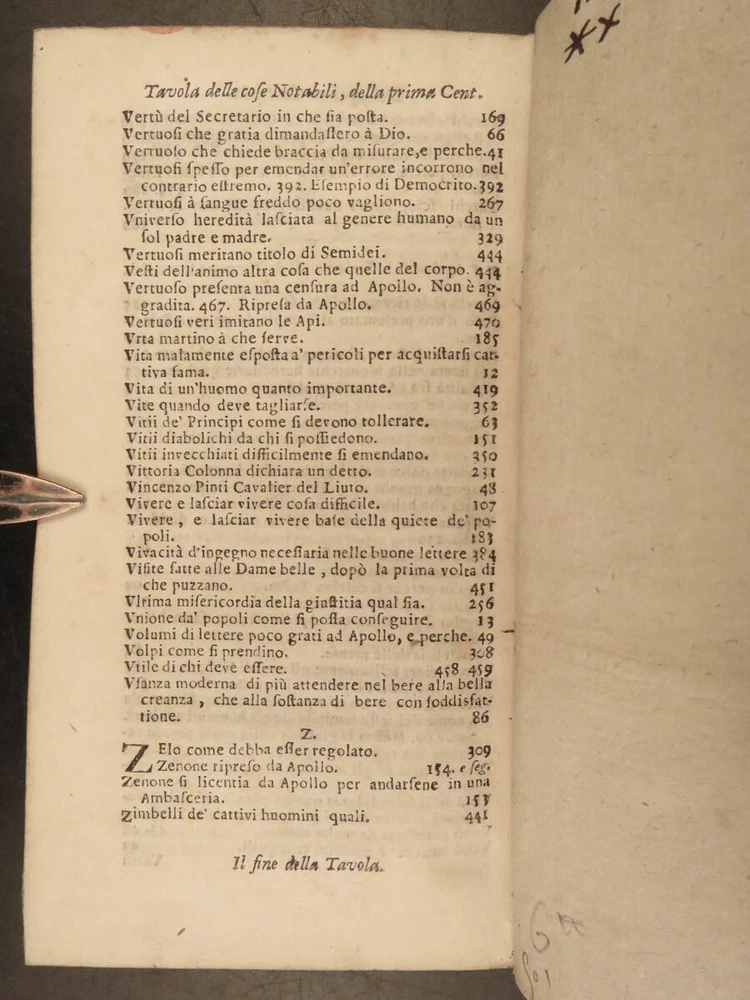 Tavola delle coſe Notabili, della prima Cent.
Vertù del Secretario in che ſia poſta. 169
Vertuoſi che gratia dimandaſſero à Dio. 66
Vertuoſo che chiede braccia da miſurare, e perche. 41
Vertuoſi ſpeſſo per emendar un'errore incorrono nel
contrario eſtremo. 392. Eſempio di Democrito. 392
Vertuoſi à ſangue freddo poco vagliono. 267
Vniverſo heredità laſciata al genere humano da un
ſol padre e madre. 329
Vertuoſi meritano titolo di Semidei. 444
Veſti dell'animo altra coſa che quelle del corpo. 444
Vertuoſo preſenta una cenſura ad Apollo. Non è ag-
gradita. 467. Ripreſa da Apollo. 469
Vertuoſi veri imitano le Api. 470
Vrta martino à che ſerve. 185
Vita malamente eſpoſta a' pericoli per acquiſtarſi cat-
tiva fama. 12
Vita di un'huomo quanto importante. 419
Vite quando deve tagliarſe. 352
Vitii de' Principi come ſi devono tollerare. 63
Vitii diabolichi da chi ſi poſſiedono. 151
Vitii invecchiati difficilmente ſi emendano. 350
Vittoria Colonna dichiara un detto. 231
Vincenzo Pinti Cavalier del Liuto. 48
Vivere e laſciar vivere coſa difficile. 107
Vivere, e laſciar vivere baſe della quiete de' po-
poli. 183
Vivacità d'ingegno neceſſaria nelle buone lettere 384
Viſite fatte alle Dame belle, dopò la prima volta di
che puzzano. 451
Vltima miſericordia della giuſtitia qual ſia. 256
Vnione da' popoli come ſi poſſa conſeguire. 13
Volumi di lettere poco grati ad Apollo, e perche. 49
Volpi come ſi prendino. 308
Vtile di chi deve eſſere. 458 459
Vſanza moderna di più attendere nel bere alla bella
creanza, che alla ſoſtanza di bere con ſoddisfat-
tione. 86
Z.
ZElo come debba eſſer regolato. 309
Zenone ripreſo da Apollo. 154. e ſeg.
Zenone ſi licentia da Apollo per andarſene in una
Ambaſceria. 157
Zimbelli de' cattivi huomini quali. 441
Il fine della Tavola.